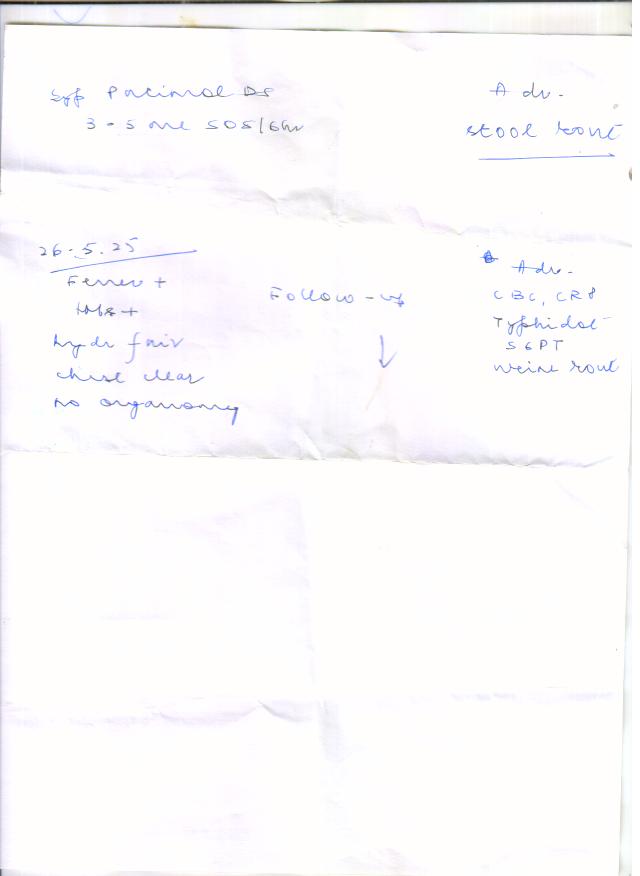 Syp Pacimol DS
3-5 ml SOS/6hr
Adv.
stool rout
26-5.25
Fever +
hydr fair
chest clear
no organomg
Follow-up
↓
Adv.
CBC, CRP
Typhidot
SGPT
urine rout